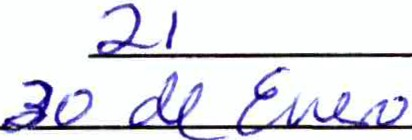 21
30 de Enero